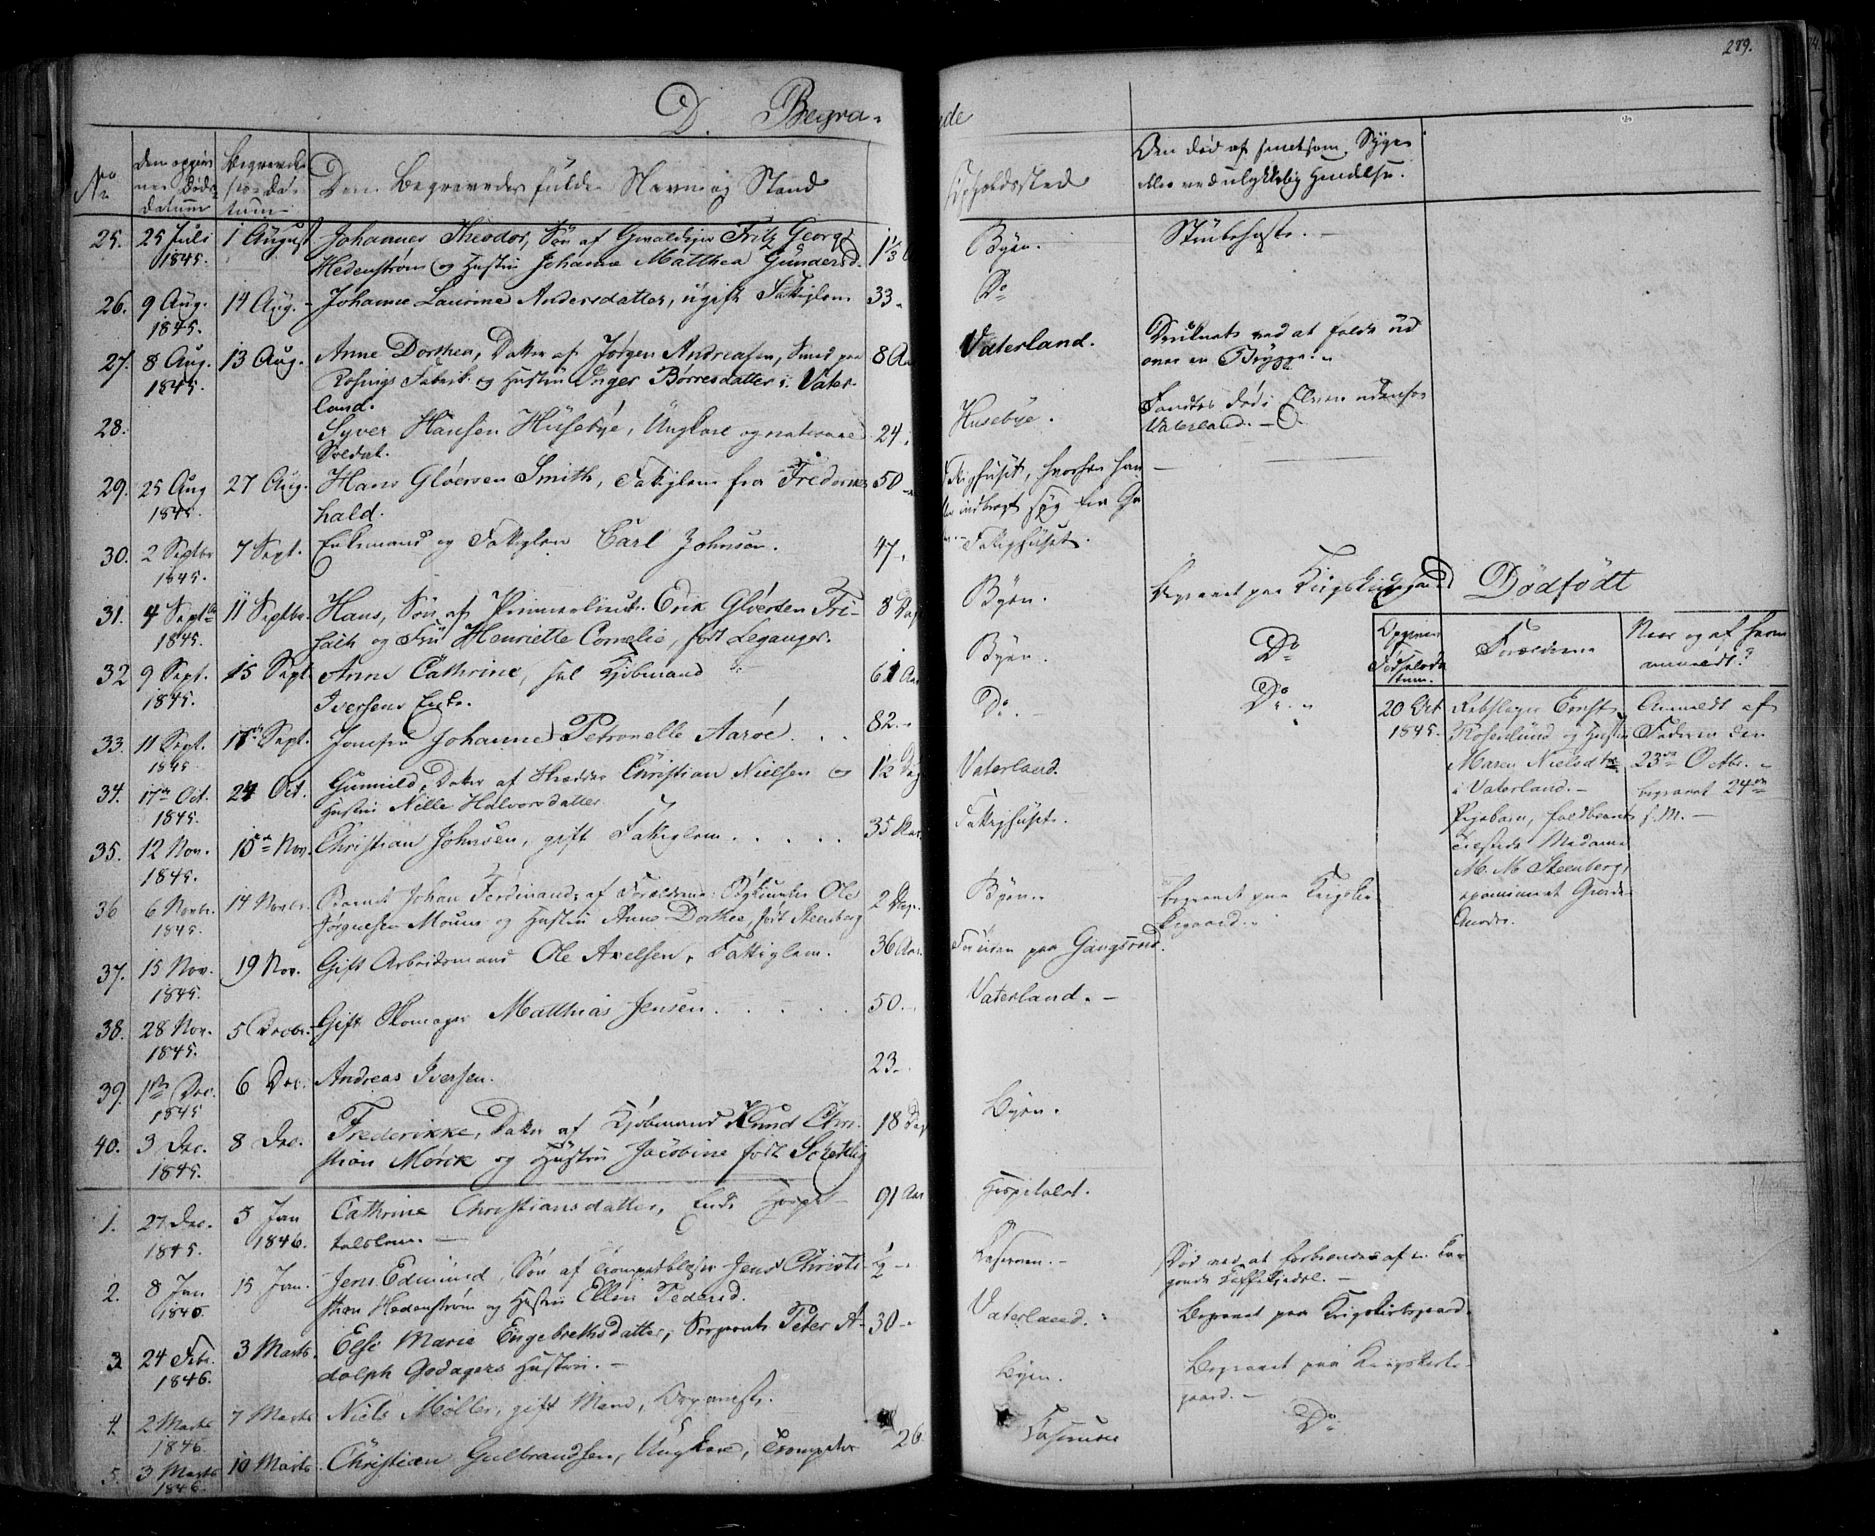 289.
D. Begra-
de
No
Den opgiv
ne Døds
datum
Begravel
ses Da
tum
Den Begravedes fulde Navn og Stand
Opholdssted
Den død af smitsom Syge
eller ved ulykkelig Hendelse.
25. 25 Juli 1 August Johannes Theodor, Søn af Fritz Georg
1845. Hedenstrøm og Hustru Johanne Matthea Gundersd. 1⅓ Byen.
26. 9 Aug. 14 Aug. Johanne Laurine Andersdatter, ugift Fattiglem 33. Do
1845.
27. 8 Aug. 13 Aug. Anne Dorthea, Datter af Jørgen Andreasen, Smed paa 8 Aa Vaterland. Druknet ved at falde ud
1845. Fabrik og Hustru Inger Børresdatter i Vater- over en Brygge.
land.
28. Syver Hansen Husebye, Ungkarl og national 24. Husebye. Fandtes død i Elven udenfor
Soldat. Vaterland.
29. 25 Aug 27 Aug. Hans Gløersen Smith, Fattiglem fra Frederiks 50 Fattighuset, hvorhen han
1845. hald. indbragt syg fra
30. 2 Septbr 7 Sept. Enkemand og Fattiglem Carl Johnsen. 47. Fattighuset.
1845.
31. 4 Septbr 11 Septbr. Hans, Søn af Premierlieut. Erik Gløersen Fri- 8 Dag Byen. Begravet paa
1845. og Fru Henriette Cornelie, født Leganger.
32 9 Sept. 15 Sept. Anne Cathrine, sal. Kjøbmand 61 Aar Byen. Do
1845. Iversens Enke.
33. 11 Sept. 17 Sept. Jomfru Johanne Petronelle Aarøe 82. Do. Do.
1845.
34. 17de Oct. 24 Oct. Gunnild, Datter af Christian Nielsen og 1½ Dag Vaterland.
1845. Hustru Nille Halvorsdatter
35. 12 Nov. 15de Nov. Christian Johnsen, gift Fattiglem 35 Aar. Fattighuset.
1845.
36 6 Novbr. 14 Novbr. Barnet Johan Ferdinand, af Forældrene Ole 2 Dage. Byen. Begravet paa Krigskir-
1845. Jørgensen Moum og Hustru Anne Dorthea, født Steenberg kegaard.
37. 15 Nov. 19 Nov. Gift Arbeidsmand Ole Axelsen, Fattiglem. 36 Aar. paa Gangsrød.
1845.
38. 28 Nov. 5 Decbr. Gift Skomager Matthias Jensen 50. Vaterland.
1845.
39. 1ste Dec. 6 Dec. Andreas Iversen. 23.
1845
40. 3 Dec. 8 Dec. Frederikke, Datter af Kjøbmand Knud Chri- 18 Dag Byen.
1845. stian Mørck og Hustru Jacobine født Schetlig
Dødfødt
Opgiven
Fødselsda
tum.
Forældrene
Naar og af hvem
anmeldt?
20 Oct
1845.
Rebslager Ernst
Rosenlund og Hustru
Maren Nielsdtr
i Vaterland.
Pigebarn, fuldbaaret
Madame
M. M. Steenberg,
examineret Gjorde-
moder.
Anmeldt af
Faderen den
23de Octbr.
begravet 24de
s. M.
1. 27 Dec. 5 Jan Cathrine Christiansdatter, Enke, Hospi- 91 Aar Hospitalet.
1845. 1846. talslem.
2. 8 Jan 15 Jan. Jens Edmund, Søn af Trompetblæser Jens Christi- ½ Casernen. Død ved at forbrændes af en ko-
1846. stian Hedenstrøm og Hustru Ellen Pedersd. gende Kaffekjedel.
3. 24 Febr. 3 Marts. Else Marie Engebrethsdatter, Sergeant Peter A- 30 Vaterland. Begravet paa Krigskirkegaard.
1846. dolph Godagers Hustru.
4. 2 Marts 7 Marts Niels Møller, gift Mand, Organist. Byen. Begravet paa Krigskirke-
1846 gaard.
5. 3 Marts 10 Marts. Christian Gulbrandsen, Ungkarl, Trompeter 26 Casernen Do
1846.